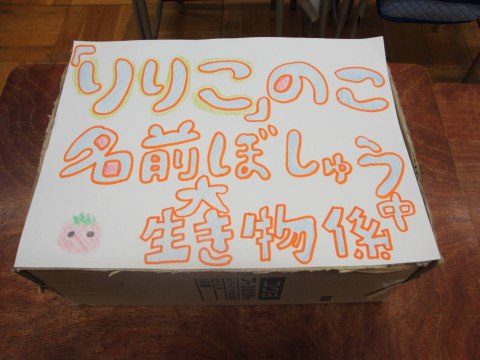 「りりこ」のこ
名前ぼしゅう中
大き
生き物係